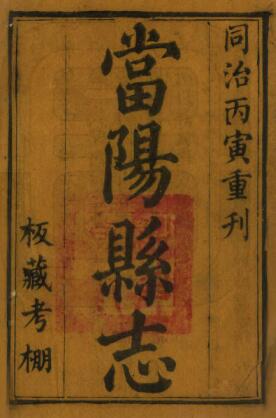 同治丙寅重刊
當陽縣志
板藏考棚